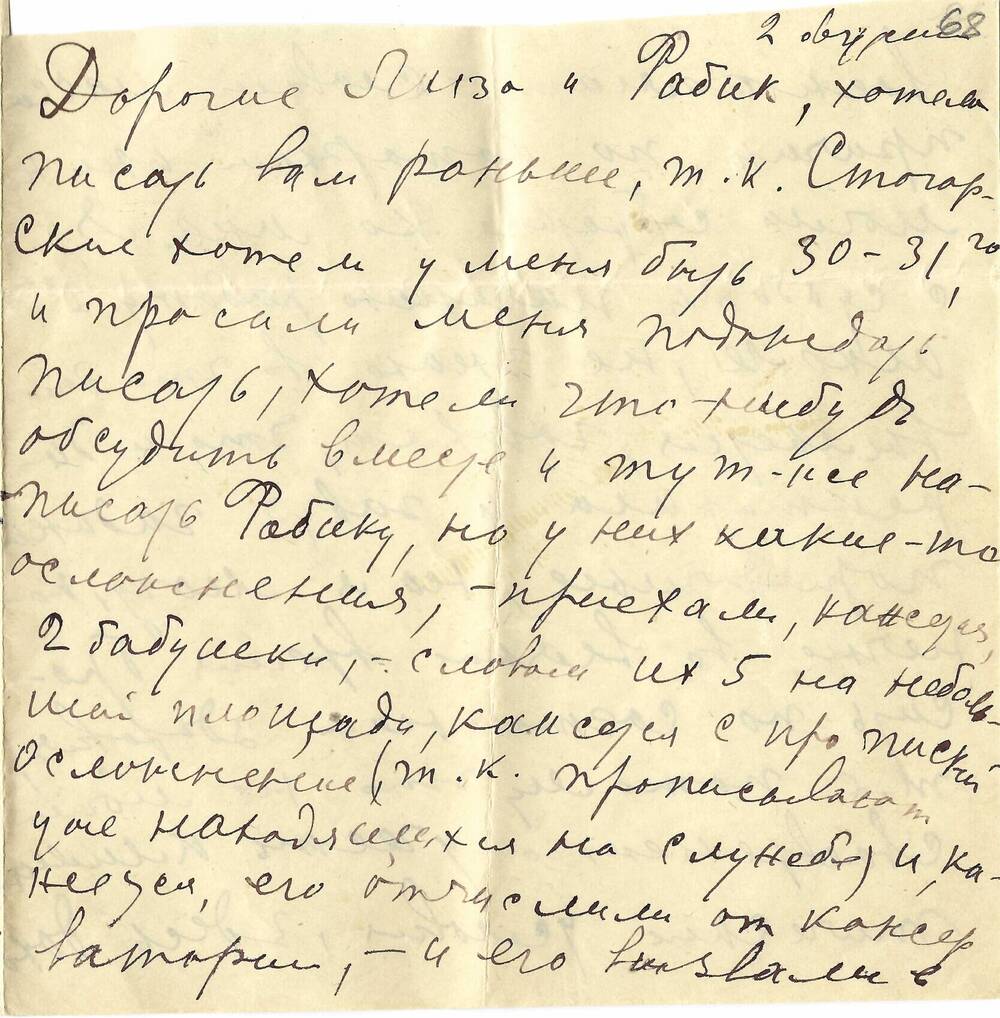 68
2
Дорогие Лиза и Рабик, хотела
писать вам раньше, т.к. Стогар-
ские хотели у меня быть 30-31,го
и просили меня подождать
писать, хотели что-нибудь
обсудить вместе и тут-же на-
писать Рабику, но у них какие-то
осложнения, - приехали, кажется,
2 бабушки, - словом их 5 на неболь-
шой площади, кажется с пропиской
осложнение (т.к. прописывают
уже находящихся на службе) и, ка-
жется, его отчислили от консер
ватории, - и его вызвали в